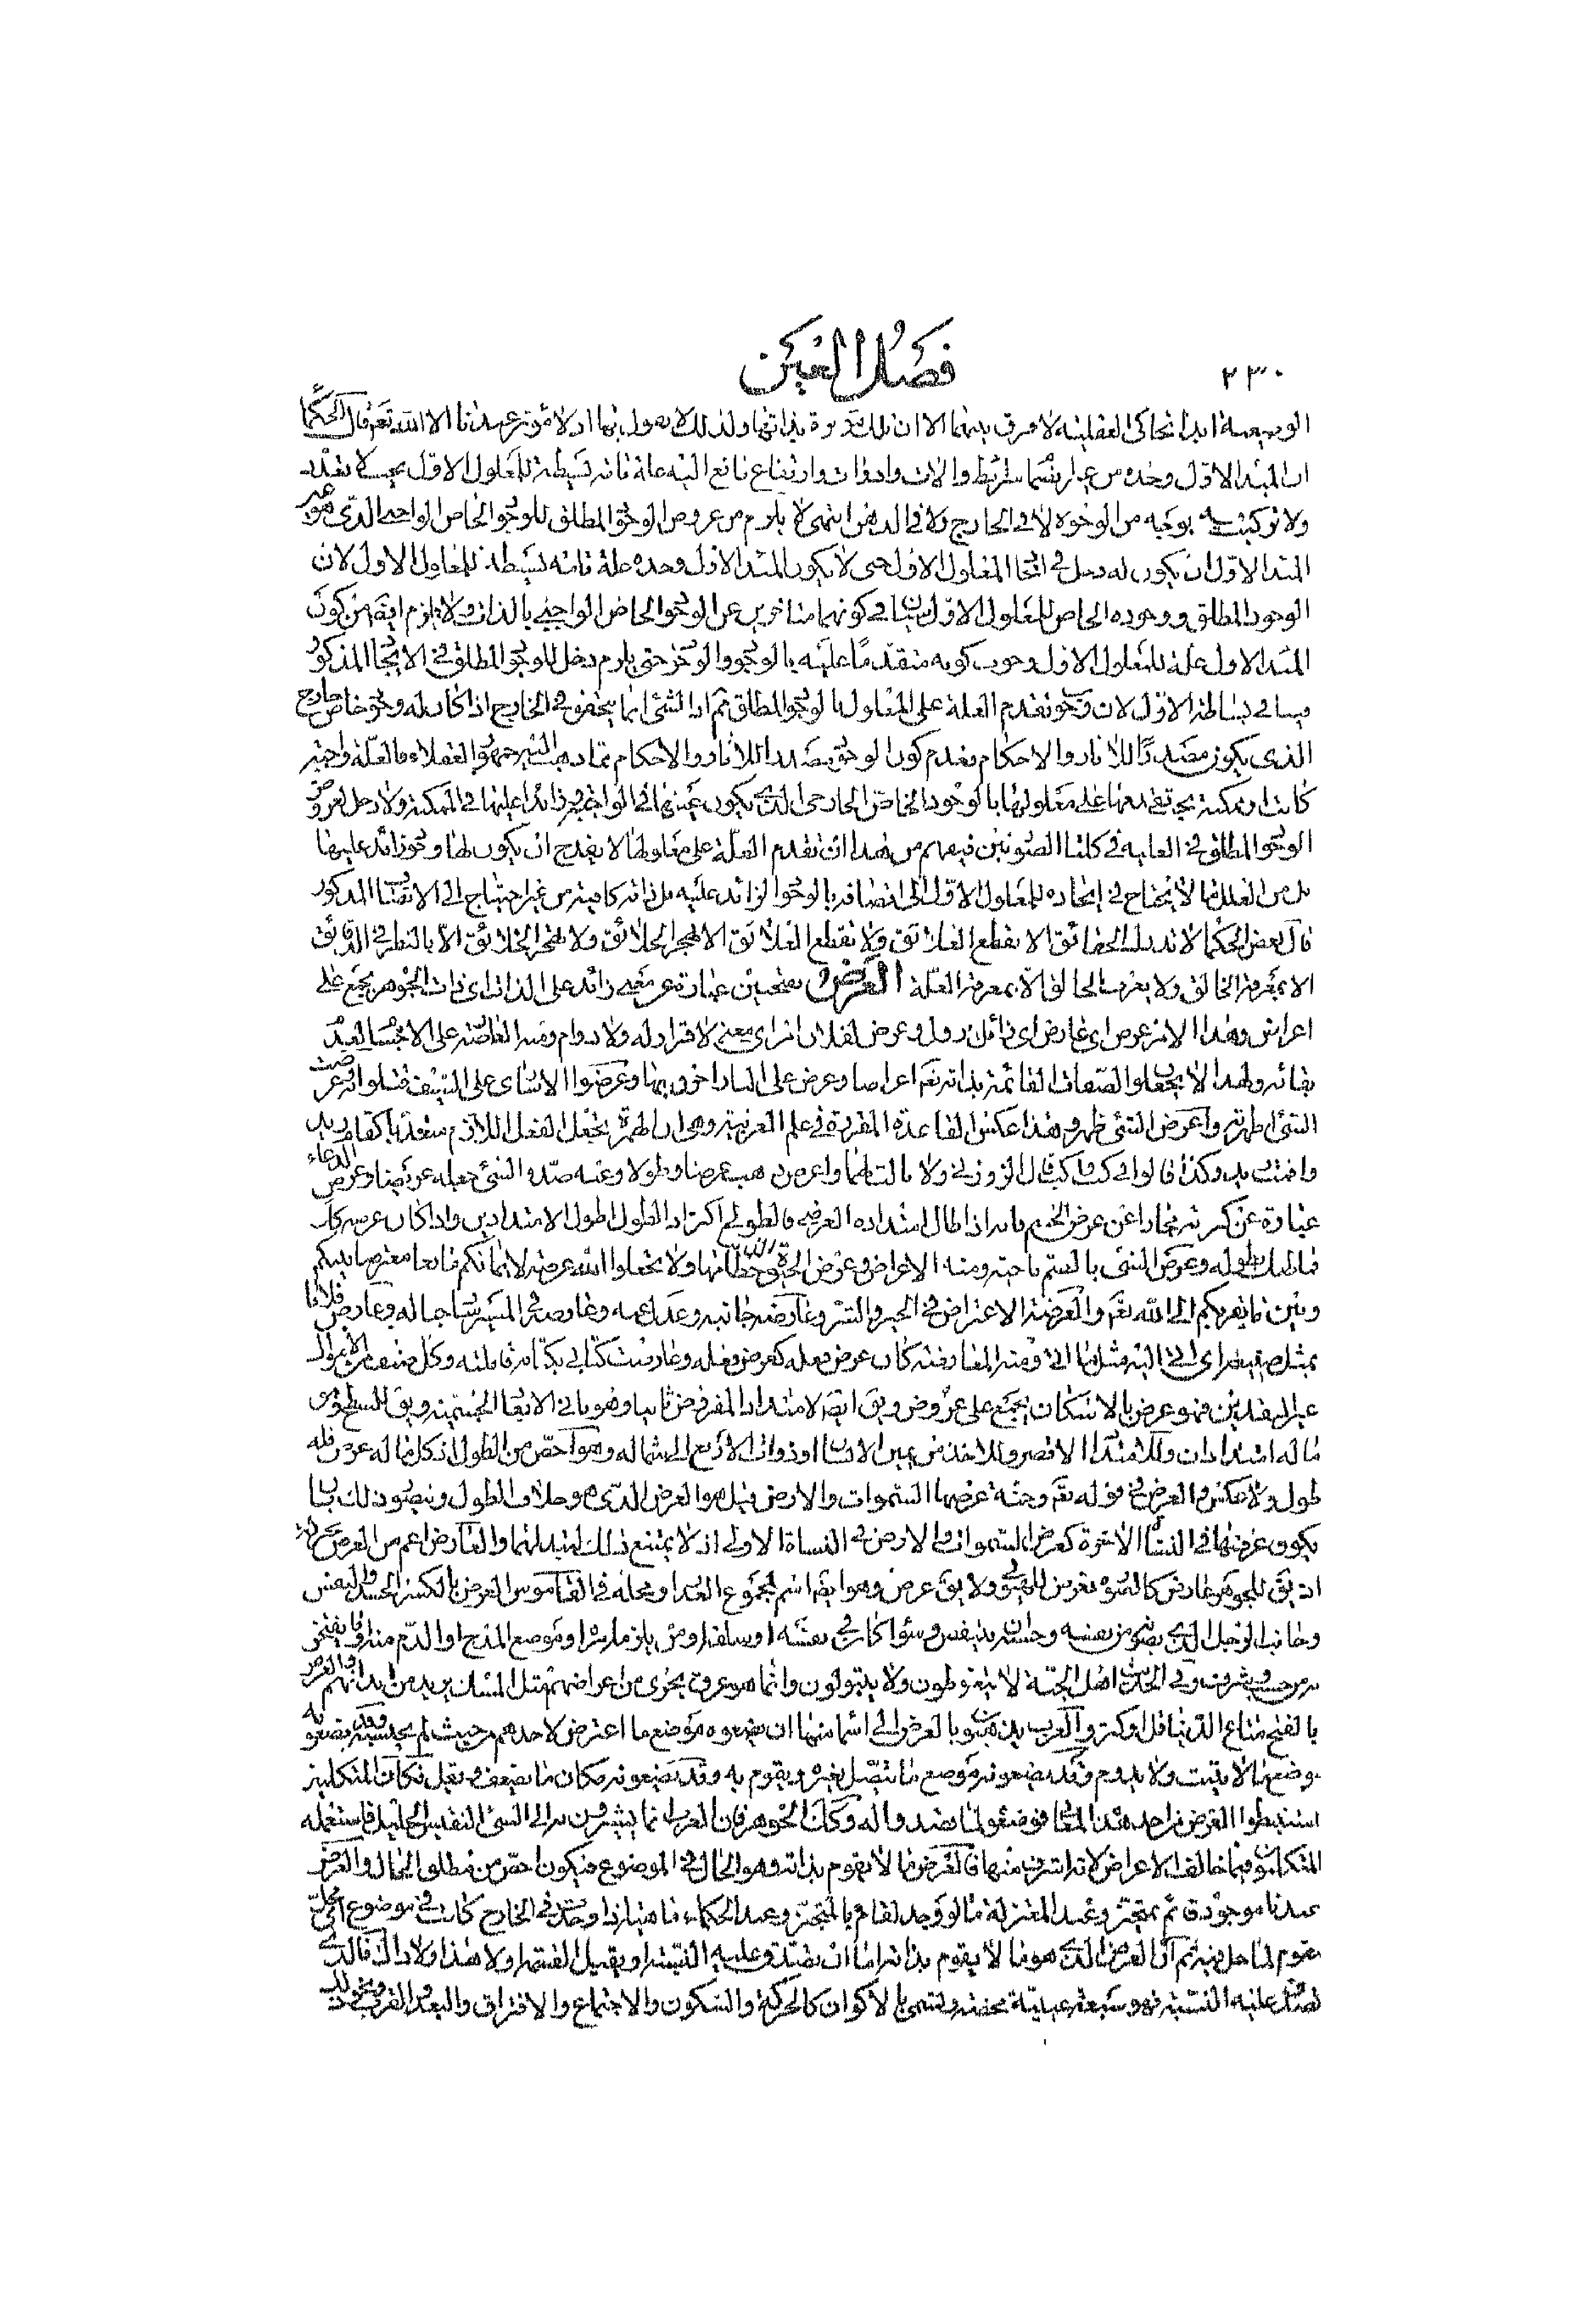 ٢٣٠ فصل العين
الوضعية ابدا تحاكي العقلية لا فرق بينهما الا ان تلك مؤثرة بذاتها ولذلك لا يقول بها اذ لا مؤثر عندنا الا الله تعالى قال الحكماء
ان المبدأ الاول وحده من غير انضمام شرائط والات وادوات وارتفاع مانع اليه علة تامة بسيطة للمعلول الاول بحيث لا تعدد
ولا تركيب فيه بوجه من الوجوه لا في الخارج ولا في الذهن انتهى لا يلزم من عروض الوجود المطلق للوجود الخاص الواجبي الذي هو عين
المبدأ الاول ان يكون له دخل في ايجاد المعلول الاول حتى لا يكون المبدأ الاول وحده علة تامة بسيطة للمعلول الاول لان
الوجود المطلق ووجوده الخاص للمعلول الاول سيان في كونهما متأخرين عن الوجود الخاص الواجبي بالذات ولا يلزم ايضا من كون
المبدأ الاول علة للمعلول الاول وجوب كونه متقدما عليه بالوجود والوجوب حتى يلزم دخل للوجود المطلق في الايجاد المذكور
فينافي بساطة الاول لان وجوب تقدم العلة على المعلول بالوجود المطلق ثم ان الشئ انما يتحقق في الخارج اذا كان له وجود خاص خارج
الذي يكون مصدرا للاثار والاحكام بعدم كون الوجود مصدرا للاثار والاحكام مما ذهب اليه جمهور العقلاء فالعلة واجبة
كانت او ممكنة يجب تقدمها على معلولها بالوجود الخاص الخارجي الذي يكون عينها في الواجب زائدا عليها في الممكنة ولا دخل لعروض
الوجود المطلق في العلية في كلتا الصورتين فيفهم من هذا ان تقدم العلة على معلولها لا يقدح ان يكون لها وجود زائد عليها
بل من العلل ما لا يحتاج في ايجاده للمعلول الاول الى اتصافه بالوجود الزائد عليه بل ذاته كافية من غير احتياج الى الاتصاف المذكور
قال بعض الحكماء لا تدرك الحقائق الا بقطع العلائق ولا تقطع العلائق الا بهجر الخلائق ولا تهجر الخلائق الا بالنظر في الدقائق
الا بمعرفة الخالق ولا يعرف الخالق الا بمعرفة العلة العرض بفتحتين عبارة عن معنى زائد على الذات اى ذات الجوهر يجمع على
اعراض وهذا الامر عرض اى عارض اى زائل يزول وعرض لفلان امر اى معنى لا قرار له ولا دوام ومنه العارضة على الاجسام لعدم
بقائه ولهذا لا يجعلوا الصفات القائمة بذاته تعالى اعراضا وعرض على النار احرق بها وعرضوا الاسارى على السيف قتلوا وعرضت
الشئ اظهرته واعرض الشئ ظهر وهذا عكس القاعدة المقررة في علم العربية وهي ان الهمزة تجعل الفعل اللازم متعديا كقام زيد
واقمت زيدا وكذا قالوا في كب واكب قال الزوزني ولا ثالث لهما واعرض ذهب عرضا وطولا وعنه صد والشئ جعله عريضا وعرض الدعاء
عبارة عن كثرته مجازا عن عرض الجسم فانه اذا طال امتداده العرضي فالطولي اكثر اذ الطول اطول الامتدادين واذا كان عرضه كذا
فما ظنك بطوله وعرض الشئ بالضم ناحيته ومنه الاعراض وعرض الحيوة الدنيا حطامها ولا تجعلوا الله عرضة لايمانكم مانعا معترضا بينكم
وبين ما يقربكم الى الله تعالى والعرضة الاعتراض في الخير والشر وعارضه جانبه وعدل عنه وعارضه في المسير سار حياله وعارض فلانا
بمثل صنيعه اى اتى اليه مثل ما اتى ومنه المعارضة كان عرض فعله كعرض فعله وعارضت كتابي بكتابه قابلته وكل صنف من الاموال
غير النقدين فهو عرض بالاسكان يجمع على عروض ويق ايضا لامتداد المفروض ثانيا وهو ثاني الابعاد الجسمية ويق للسطح وهو
ما له امتدادان وللامتداد الاقصر وللاخذ من يمين الانسان او ذوات الاربع الى شماله وهو اخص من الطول اذ كل ما له عرض فله
طول ولا عكس والعرض في قوله تعالى وجنة عرضها السموات والارض قيل هو العرض الذي هو خلاف الطول ويتصور ذلك بان
يكون عرضها في النشأة الاخرة كعرض السموات والارض في النشأة الاولى اذ لا يمتنع ذلك لتبدلهما والعارض اعم من العرض محركة
اذ يق للجوهر عارض كالصورة تعرض للهيولى ولا يق عرض وهو ايضا اسم لمجموع العمد او محله في القاموس العرض بالكسر الجسد والنفس
وجانب الرجل الذي يصونه من نفسه وحسبه ان ينتقص وسواء كان في نفسه او سلفه او من يلزمه امره او موضع المدح او الذم منه او ما يفتخر
به من حسب وشرف وفي الحديث اهل الجنة لا يتغوطون ولا يتبولون وانما هو عرق يجري من اعراضهم مثل المسك يريد من ابدانهم والعرض
بالفتح متاع الدنيا قل او كثر والعرب يذهبون بالعرض الى اسماء منها ان يضعوه موضع ما اعترض لاحدهم من حيث لم يحتسبه وقد يضعونه
موضع ما لا يثبت ولا يدوم وقد يضعونه موضع ما يتصل بغيره ويقوم به وقد يضعونه مكان ما يضعف ويقل فكان المتكلمين
استنبطوا العرض من احد هذه المعاني فوضعوه لما قصدوا له وكذا الجوهر فان العرب انما يشيرون به الى الشئ النفيس الجليل فاستعمله
المتكلمون فيما خالف الاعراض لانه اشرف منها فالعرض ما لا يقوم بذاته وهو الحال في الموضوع فيكون اخص من مطلق الحال والعرض
عندنا موجود قائم بمتحيز وعند المعتزلة ما لو وجد لقام بالمتحيز وعند الحكماء ماهية اذا وجدت في الخارج كانت في موضوع اى محل
مقوم لما حل فيه ثم ان العرض الذي هو ما لا يقوم بذاته اما ان يصدق عليه النسبة او يقبل القسمة او لا هذا ولا ذاك فالذي
تصدق عليه النسبة فهو سبعة عينية محضة وتسمى بالاكوان كالحركة والسكون والاجتماع والافتراق والبعد والقرب ونحو ذلك